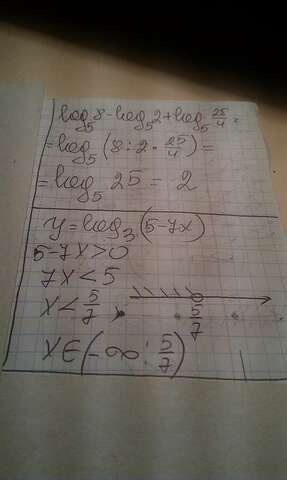 log₅8-log₅2+log₅ 25/4 =
=log₅(8:2*25/4)=
=log₅ 25 = 2
y=log₃(5-7x)
5-7x>0
7x<5
x<5/7
5/7
x∈(-∞; 5/7)